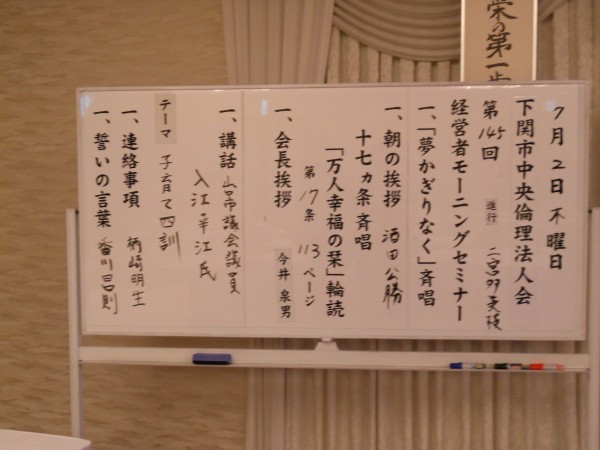 栄の第一歩
7月2日木曜日
下関市中央倫理法人会
第145回 進行
経営者モーニングセミナー
一、「夢かぎりなく」斉唱
一、朝の挨拶 酒田公勝
十七ヵ条斉唱
「万人幸福の栞」輪読
第17条 113ページ
一、会長挨拶 今井泉男
一、講話 山口市議会議員
入江幸江氏
テーマ 子育て四訓
一、連絡事項 柄崎明生
一、誓いの言葉 香川昌則